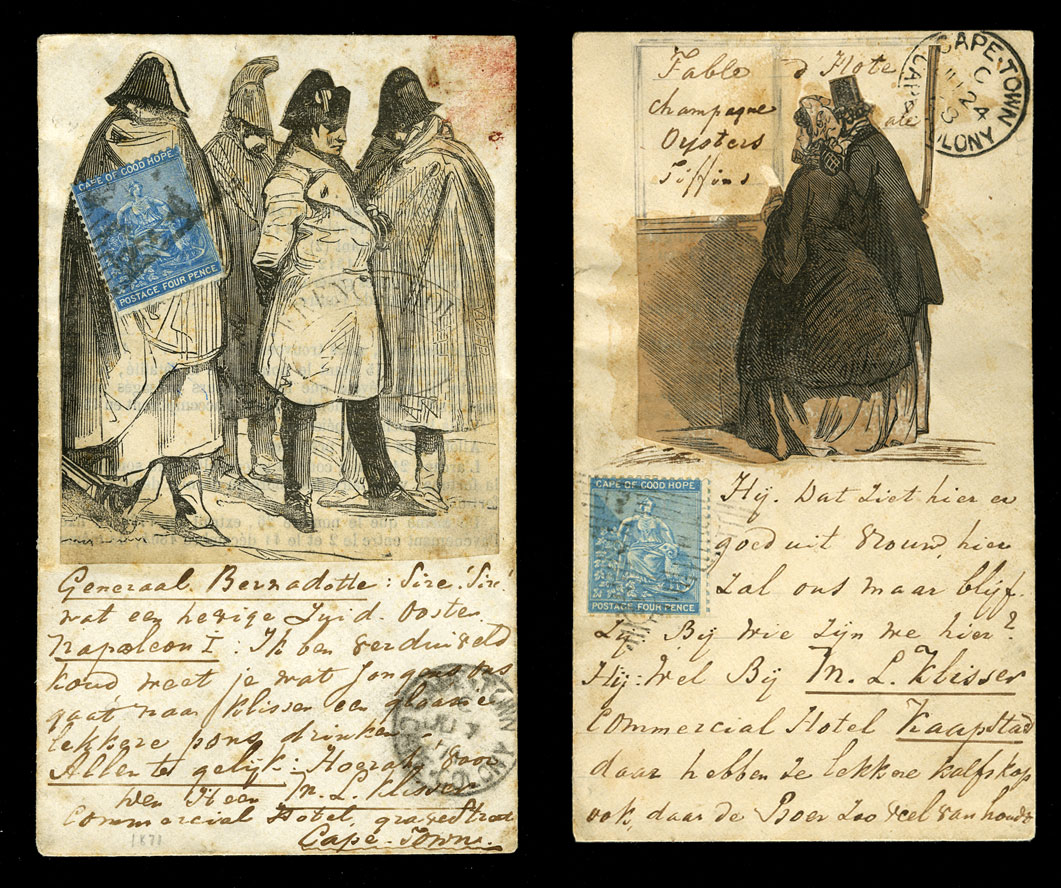 CAPE OF GOOD HOPE
POSTAGE FOUR PENCE
Generaal Bernadotte: Sire! Sire!
wat een hevige Zuid. Ooste
Napoleon I: Ik ben verduiveld
koud weet je wat jongens ons
gaat naar Klisser een glaasie
lekkere pons drinken.
Allen te gelijk: Hoezah voor
den Heer M. L. Klisser
Commercial Hotel, gravestraat
Cape-Town.
1871
Table d'Hote
Champagne
Oysters
Tiffins
ale
CAPE-TOWN
C
24
COLONY
CAPE OF GOOD HOPE
POSTAGE FOUR PENCE
Hij. Dat ziet hier er
goed uit vrouw, hier
zal ons maar blijf.
Zij. Bij wie zijn we hier?
Hij: Wel Bij M. L. Klisser
Commercial Hotel Kaapstad
daar hebben ze lekkere kalfskop
ook, daar de Boer zoo veel van houdt